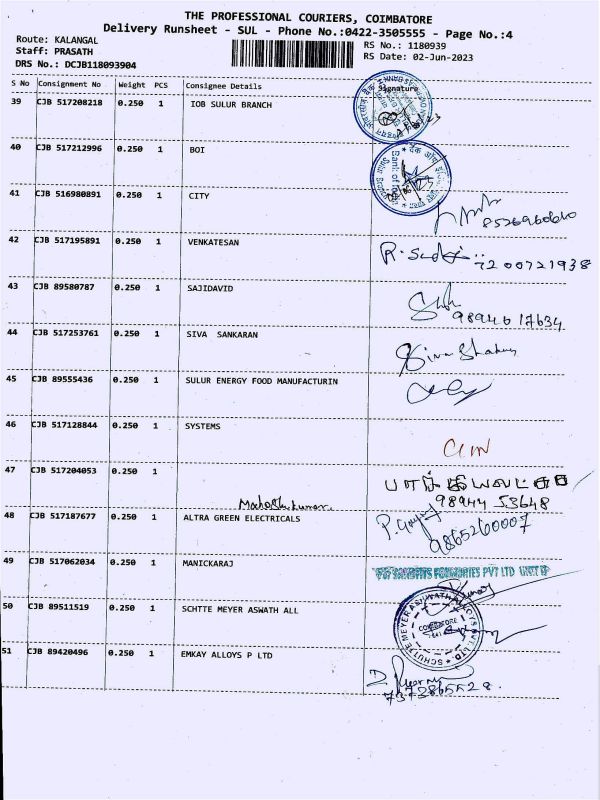 THE PROFESSIONAL COURIERS, COIMBATORE
Delivery Runsheet - SUL - Phone No.:0422-3505555 - Page No.:4
Route: KALANGAL RS No.: 1180939
Staff: PRASATH RS Date: 02-Jun-2023
DRS No.: DCJB118093904
S No Consignment No Weight PCS Consignee Details Signature
39 CJB 517208218 0.250 1 IOB SULUR BRANCH
40 CJB 517212996 0.250 1 BOI
41 CJB 516980891 0.250 1 CITY
8526960610
42 CJB 517195891 0.250 1 VENKATESAN
7200721938
43 CJB 89580787 0.250 1 SAJIDAVID
9894617634
44 CJB 517253761 0.250 1 SIVA SANKARAN
45 CJB 89555436 0.250 1 SULUR ENERGY FOOD MANUFACTURIN
46 CJB 517128844 0.250 1 SYSTEMS
47 CJB 517204053 0.250 1
98944 53648
48 CJB 517187677 0.250 1 ALTRA GREEN ELECTRICALS
9865260007
49 CJB 517062034 0.250 1 MANICKARAJ
50 CJB 89511519 0.250 1 SCHTTE MEYER ASWATH ALL
SCHUTTE MEYER ASHWATH ALLOYS PVT LTD
COIMBATORE
51 CJB 89420496 0.250 1 EMKAY ALLOYS P LTD
7373865528